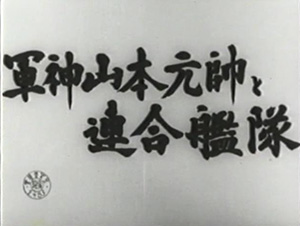 軍神山本元帥と
連合艦隊